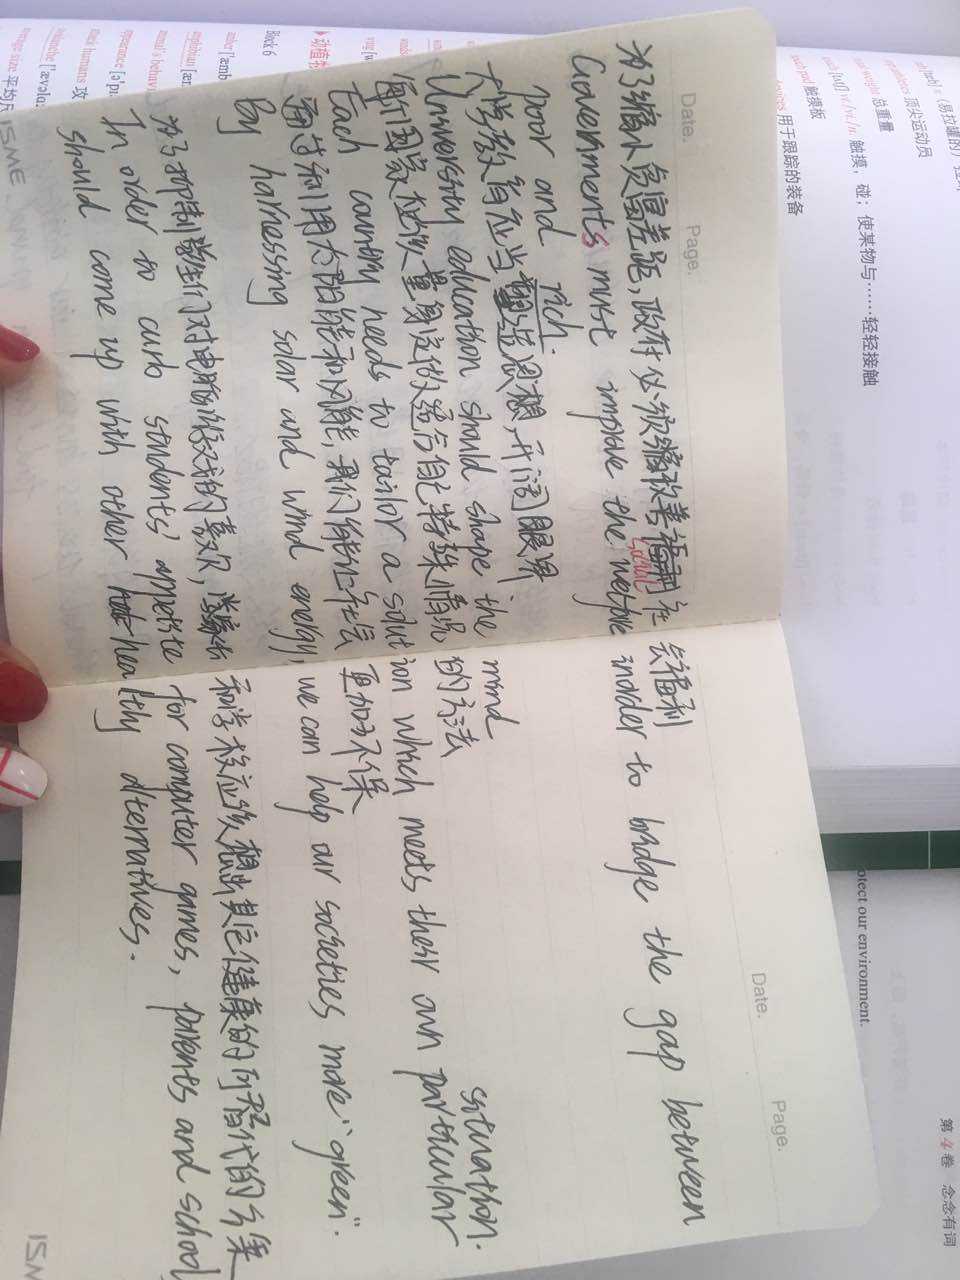 Date. Page. Date. Page.
为了缩小贫富差距,政府必须改善社会福利
social
Governments must improve the welfare inorder to bridge the gap between
poor and rich.
大学教育应当塑造思想,开阔眼界
University education should shape the mind
每个国家必须量身定做适合自己特殊情况的方法
situation.
Each country needs to tailor a solution which meets their own particular
通过利用太阳能和风能,我们能让社会更加环保
By harnessing solar and wind energy, we can help our societies more "green".
为了抑制学生们对电脑游戏的喜欢,家长和学校应该想出其它健康的可替代的方案
In older to curb stendents' appetite for computer games, parents and school
should come up with other healthy alternatives.
ISME
ISM
(易拉罐的)
顶尖运动员
总重量
vt./vi./n. 触摸,碰;使某物与……轻轻接触
touch pad 触摸板
用于跟踪的装备
otect our environment.
第 4 卷 念念有词
Book 6